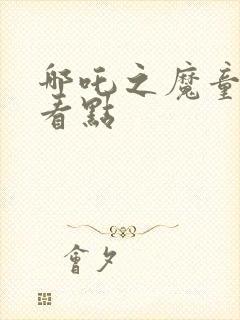 哪吒之魔童
看點
會夕